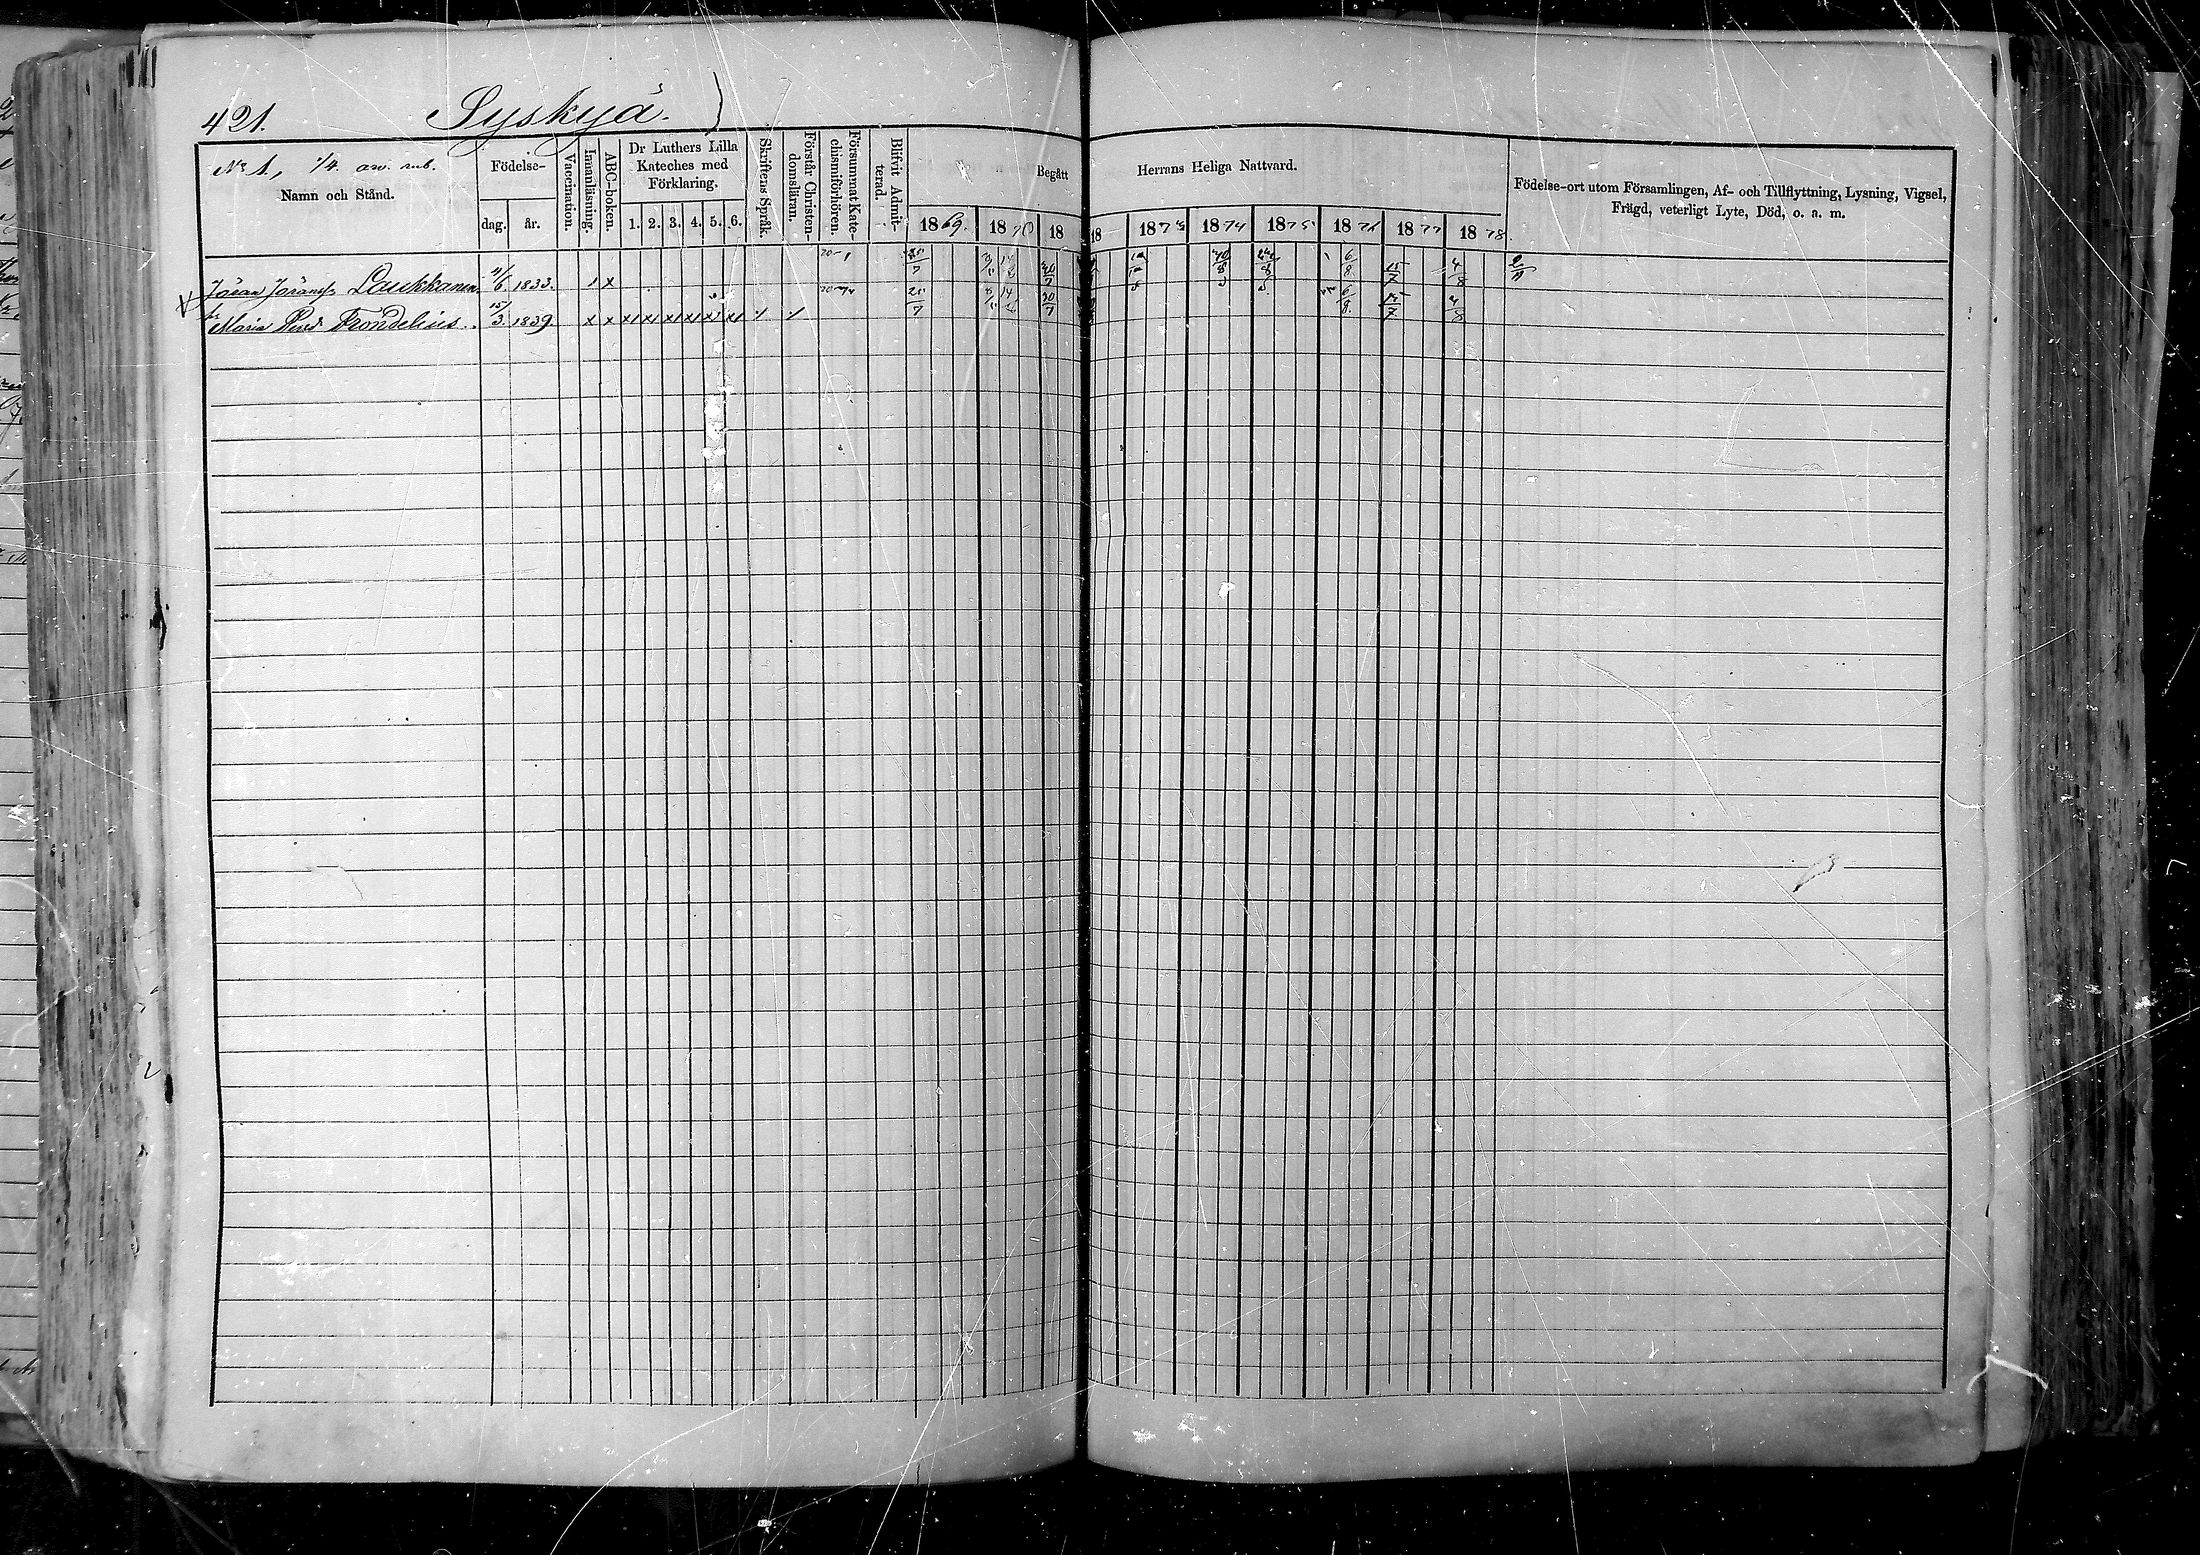 421. Syskyä.
No 1, 1/4. arr. rub.
Namn och Stånd.
Födelse-
dag. år.
Vaccination.
Innanläsning.
ABC-boken.
Dr Luthers Lilla
Kateches med
Förklaring.
1. 2. 3. 4. 5. 6.
Skriftens Språk.
Förstår Christen-
domsläran.
Försummat Kate-
chismiförhören.
Blifvit Admit-
terad.
Begått Herrans Heliga Nattvard.
1869. 1870 18 18 1873 1874 1875 1876 1877 1878.
Födelse-ort utom Församlingen, Af- och Tillflyttning, Lysning, Vigsel,
Frägd, veterligt Lyte, Död, o. a. m.
Jöran Jöranss. Laukkanen 11/6. 1833. 25/7 30/7 6/8 15/7 4/8
Maria Frondelius. 15/3. 1839. x x x x x x x x 25/7 30/7 6/8. 15/7 4/8